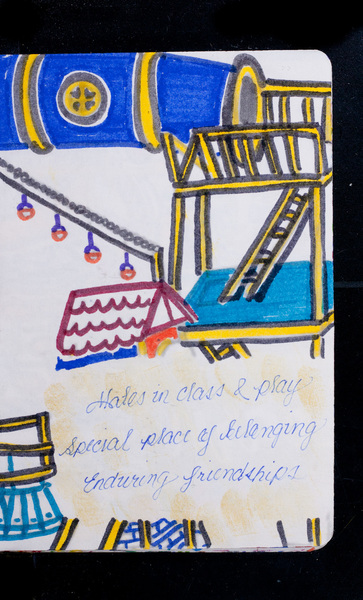 Hales in class & play
Special place of belonging
Enduring friendships